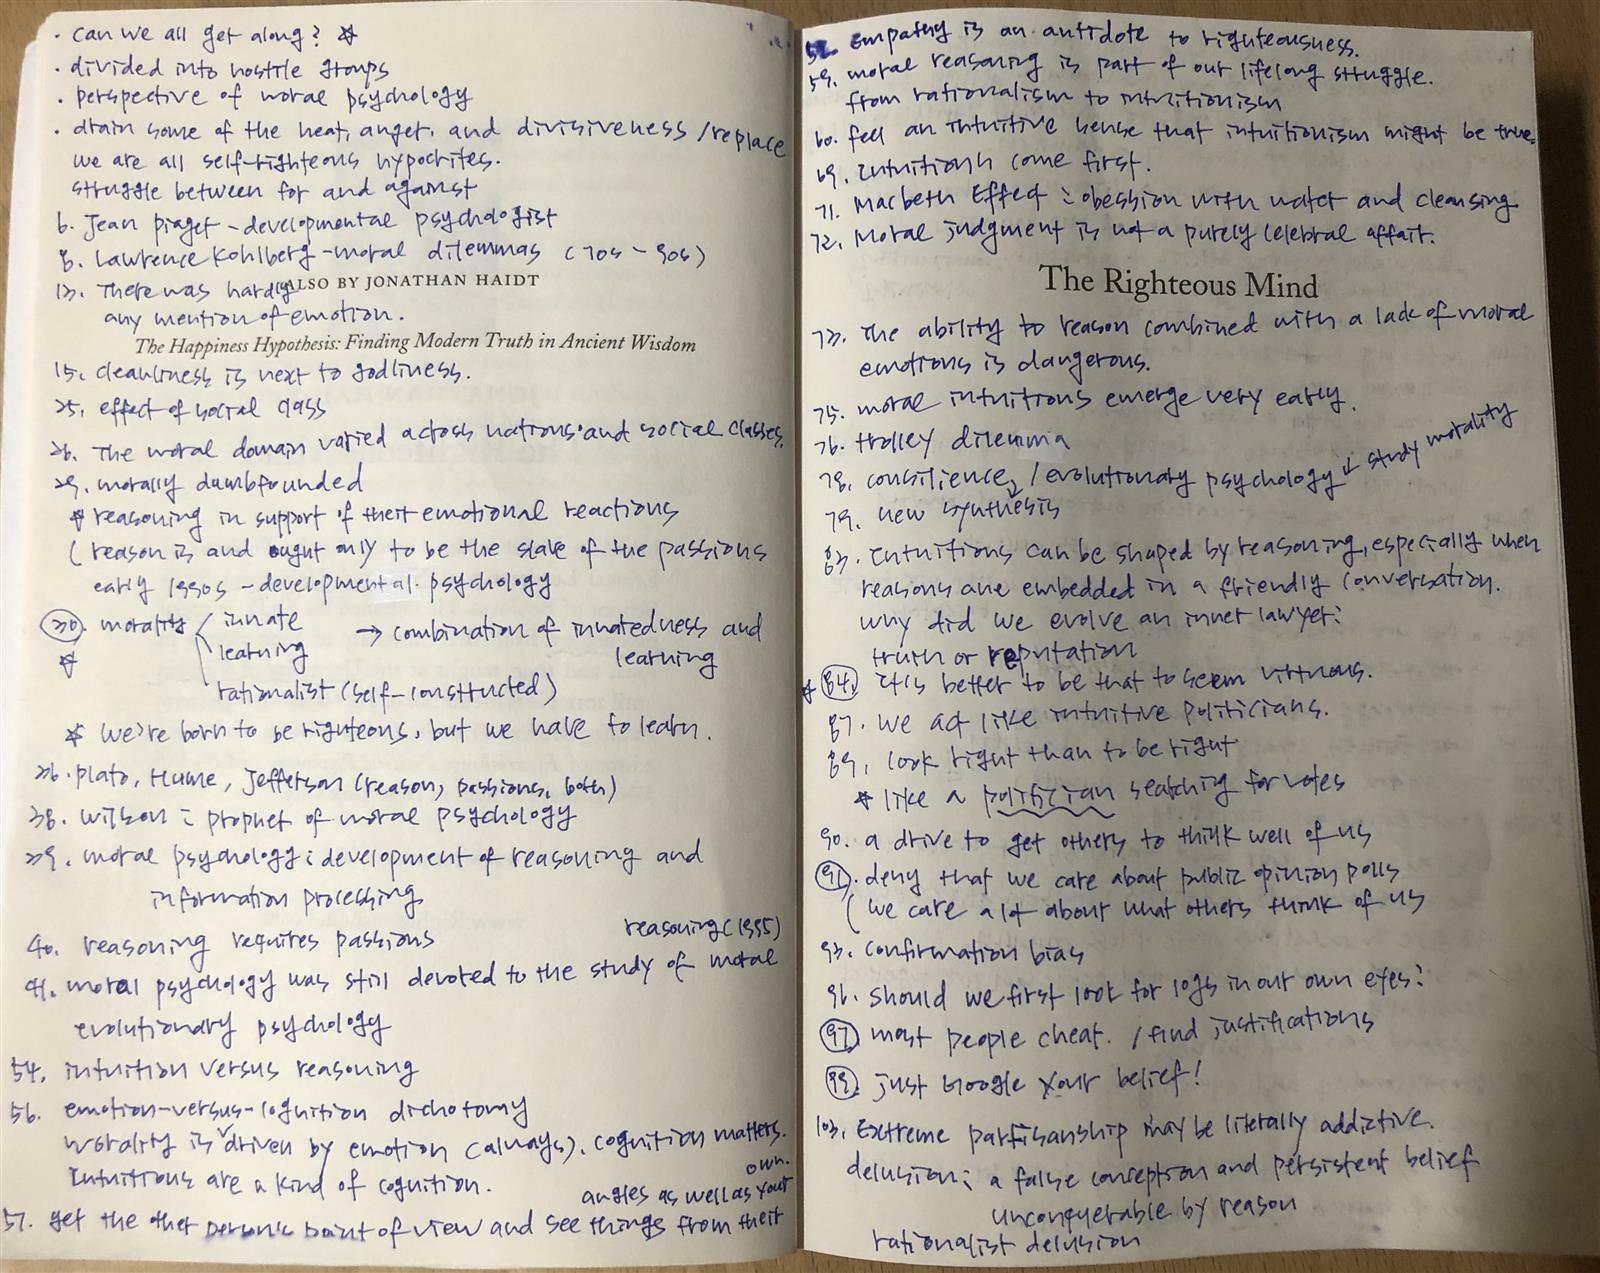 · can we all get along? ☆
· divided into hostile groups
· perspective of moral psychology
· drain some of the heat, anger, and divisiveness / replace
we are all self-righteous hypocrites.
struggle between for and against
6. Jean piaget - developmental psychologist
8. Lawrence Kohlberg - moral dilemmas (70s - 90s)
ALSO BY JONATHAN HAIDT
13. There was hardly
any mention of emotion.
The Happiness Hypothesis: Finding Modern Truth in Ancient Wisdom
15. cleanliness is next to godliness.
25. effect of social class
26. The moral domain varied across nations and social classes.
29. morally dumbfounded
☆ reasoning in support of their emotional reactions
( reason is and ought only to be the slave of the passions
early 1990s - developmental psychology
30. morality < innate → combination of innatedness and
learning learning
rationalist (self-constructed)
☆ we're born to be righteous, but we have to learn.
36. plato, Hume, Jefferson (reason, passions, both)
38. wilson : prophet of moral psychology
39. moral psychology : development of reasoning and
information processing
40. reasoning requires passions
reasoning (1995)
41. moral psychology was still devoted to the study of moral
evolutionary psychology
54. intuition versus reasoning
56. emotion-versus-cognition dichotomy
morality is driven by emotion (always). cognition matters.
Intuitions are a kind of cognition.
own.
angles as well as your
57. get the other person's point of view and see things from their
58. Empathy is an antidote to righteousness.
59. moral reasoning is part of our lifelong struggle.
from rationalism to intuitionism
60. feel an intuitive sense that intuitionism might be true.
69. Intuitions come first.
71. Macbeth Effect : obession with water and cleansing
72. Moral judgment is not a purely celebral affair.
The Righteous Mind
73. the ability to reason combined with a lack of moral
emotions is dangerous.
75. moral intuitions emerge very early.
76. trolley dilemma
78. consilience, / evolutionary psychology ↙ study morality
79. new synthesis
83. Intuitions can be shaped by reasoning, especially when
reasons are embedded in a friendly conversation.
why did we evolve an inner lawyer?
truth or reputation
☆ 84. it is better to be that to seem virtuous.
87. we act like intuitive politicians.
89. look right than to be right
☆ like a politician searching for votes
90. a drive to get others to think well of us
91. deny that we care about public opinion polls
( we care a lot about what others think of us
93. confirmation bias
96. should we first look for logs in our own eyes?
97. most people cheat. / find justifications
99. just Google your belief!
103. Extreme partisanship may be literally addictive.
delusion : a false conception and persistent belief
unconquerable by reason
rationalist delusion